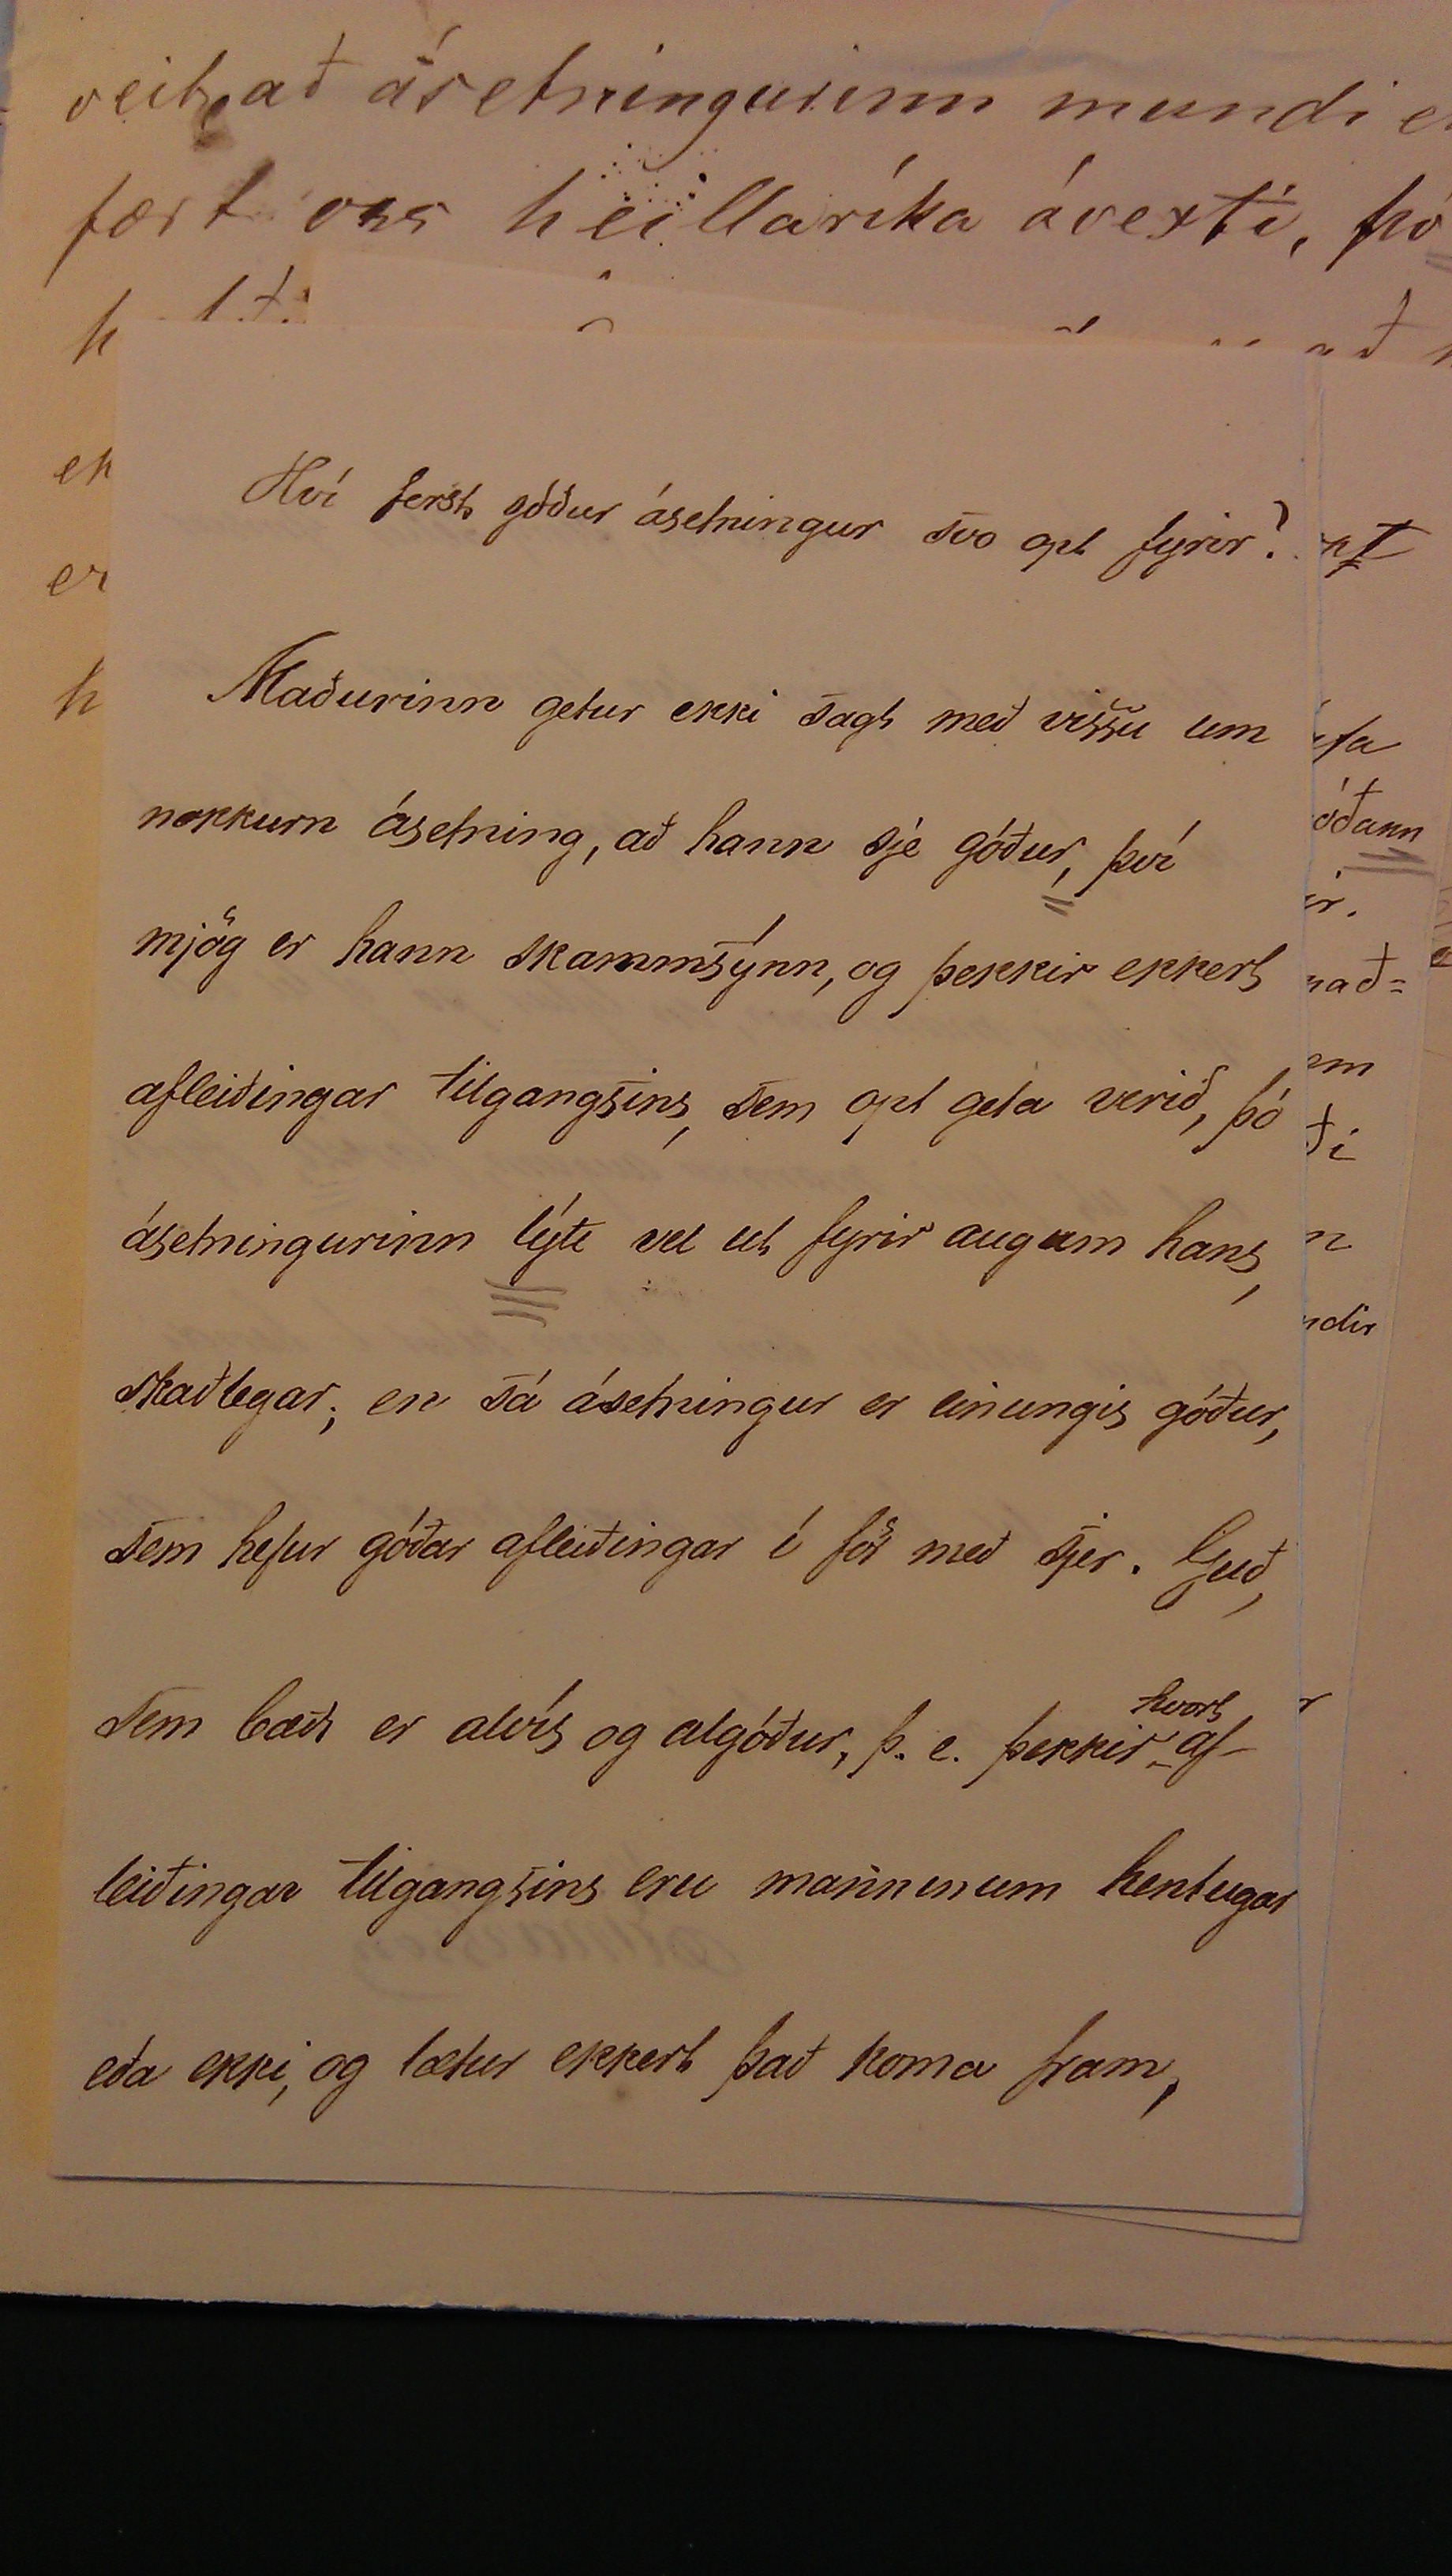 veit, að ásetningurinn mundi
fært oss heillaríka ávexti, þó
Hví ferst góður ásetningur svo opt fyrir?
Maðurinn getur ekki sagt með vissu um
nokkurn ásetning, að hann sje góður, því
mjög er hann skammsýnn, og þekkir ekkert
afleiðingar tilgangsins, sem opt geta verið, þó
ásetningurinn lýti vel út fyrir augum hans,
skaðlegar; en sá ásetningur er einungis góður,
sem hefur góðar afleiðingar í för með sjer. Guð,
sem bæði er alvís og algóður, þ. e. þekkir hvort af-
leiðingar tilgangsins eru manninum hentugar
eða ekki, og lætur ekkert það koma fram,